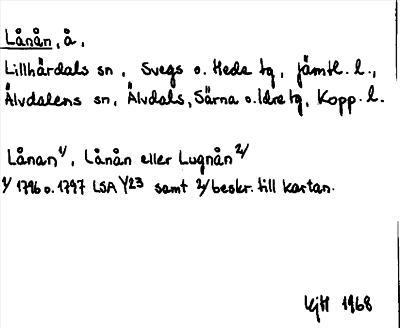 Lånån, å.
Lillhärdals sn, Svegs o. Hede tg, Jämtl. l.,
Älvdalens sn, Älvdals, Särna o. Idre tg, Kopp. l.
Lånan 1/, Lånån eller Lugnån 2/
1/ 1796 o. 1797 LSA Y23 samt 2/ beskr. till kartan.
1968